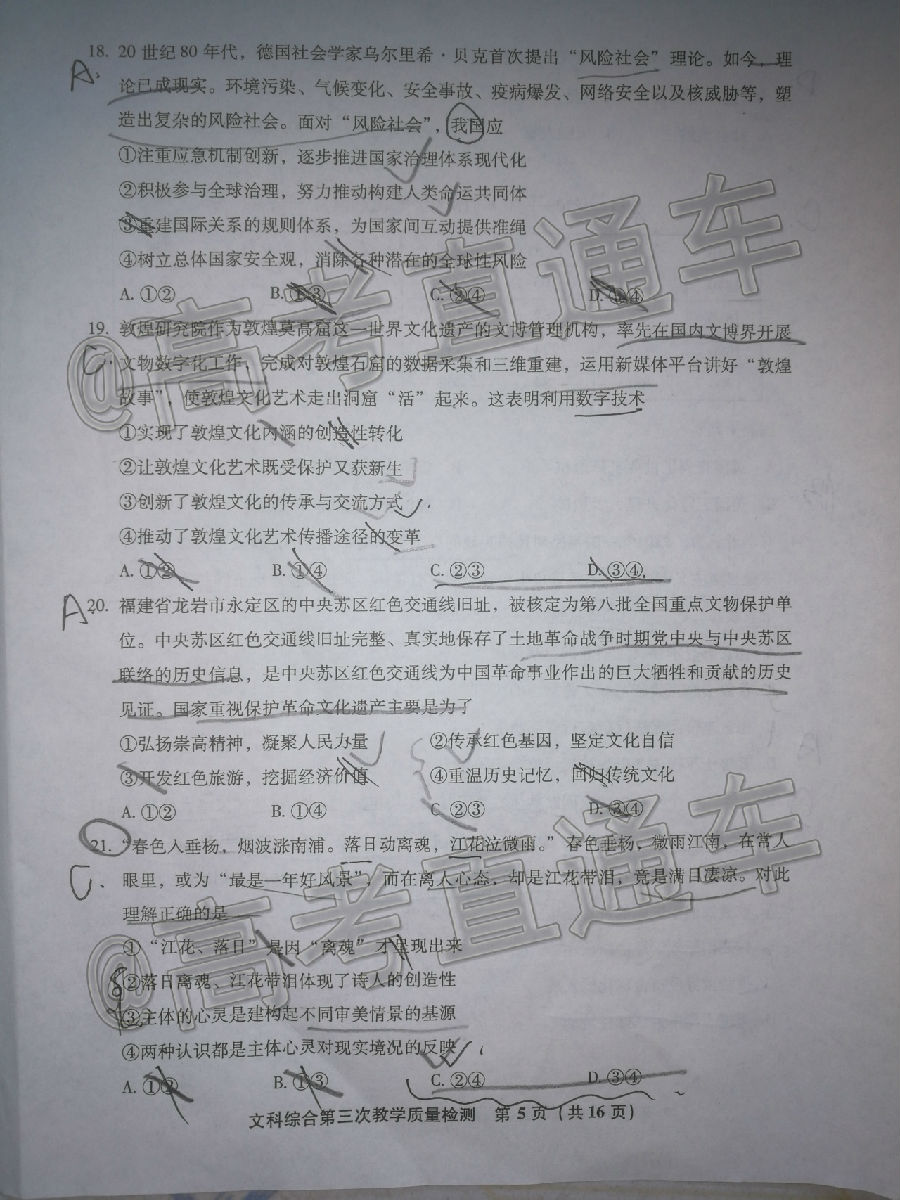 18. 20世纪80年代，德国社会学家乌尔里希·贝克首次提出“风险社会”理论。如今，理
A.
论已成现实。环境污染、气候变化、安全事故、疫病爆发、网络安全以及核威胁等，塑
造出复杂的风险社会。面对“风险社会”，我国应
①注重应急机制创新，逐步推进国家治理体系现代化
②积极参与全球治理，努力推动构建人类命运共同体
③重建国际关系的规则体系，为国家间互动提供准绳
④树立总体国家安全观，消除各种潜在的全球性风险
A. ①② B. ①③ C. ②④ D. ③④
19. 敦煌研究院作为敦煌莫高窟这一世界文化遗产的文博管理机构，率先在国内文博界开展
C.
文物数字化工作，完成对敦煌石窟的数据采集和三维重建，运用新媒体平台讲好“敦煌
故事”，使敦煌文化艺术走出洞窟“活”起来。这表明利用数字技术
①实现了敦煌文化内涵的创造性转化
②让敦煌文化艺术既受保护又获新生
③创新了敦煌文化的传承与交流方式
④推动了敦煌文化艺术传播途径的变革
A. ①② B. ①④ C. ②③ D. ③④
A
20. 福建省龙岩市永定区的中央苏区红色交通线旧址，被核定为第八批全国重点文物保护单
位。中央苏区红色交通线旧址完整、真实地保存了土地革命战争时期党中央与中央苏区
联络的历史信息，是中央苏区红色交通线为中国革命事业作出的巨大牺牲和贡献的历史
见证。国家重视保护革命文化遗产主要是为了
①弘扬崇高精神，凝聚人民力量 ②传承红色基因，坚定文化自信
③开发红色旅游，挖掘经济价值 ④重温历史记忆，回归传统文化
A. ①② B. ①④ C. ②③ D. ③④
21. “春色入垂杨，烟波涨南浦。落日动离魂，江花泣微雨。”春色垂杨，微雨江南，在常人
C.
眼里，或为“最是一年好风景”，而在离人心态，却是江花带泪，竟是满目凄凉。对此
理解正确的是
①“江花、落日”是因“离魂”才呈现出来
②落日离魂、江花带泪体现了诗人的创造性
③主体的心灵是建构起不同审美情景的基源
④两种认识都是主体心灵对现实境况的反映
A. ①② B. ①③ C. ②④ D. ③④
文科综合第三次教学质量检测 第5页（共16页）
@高考直通车
@高考直通车